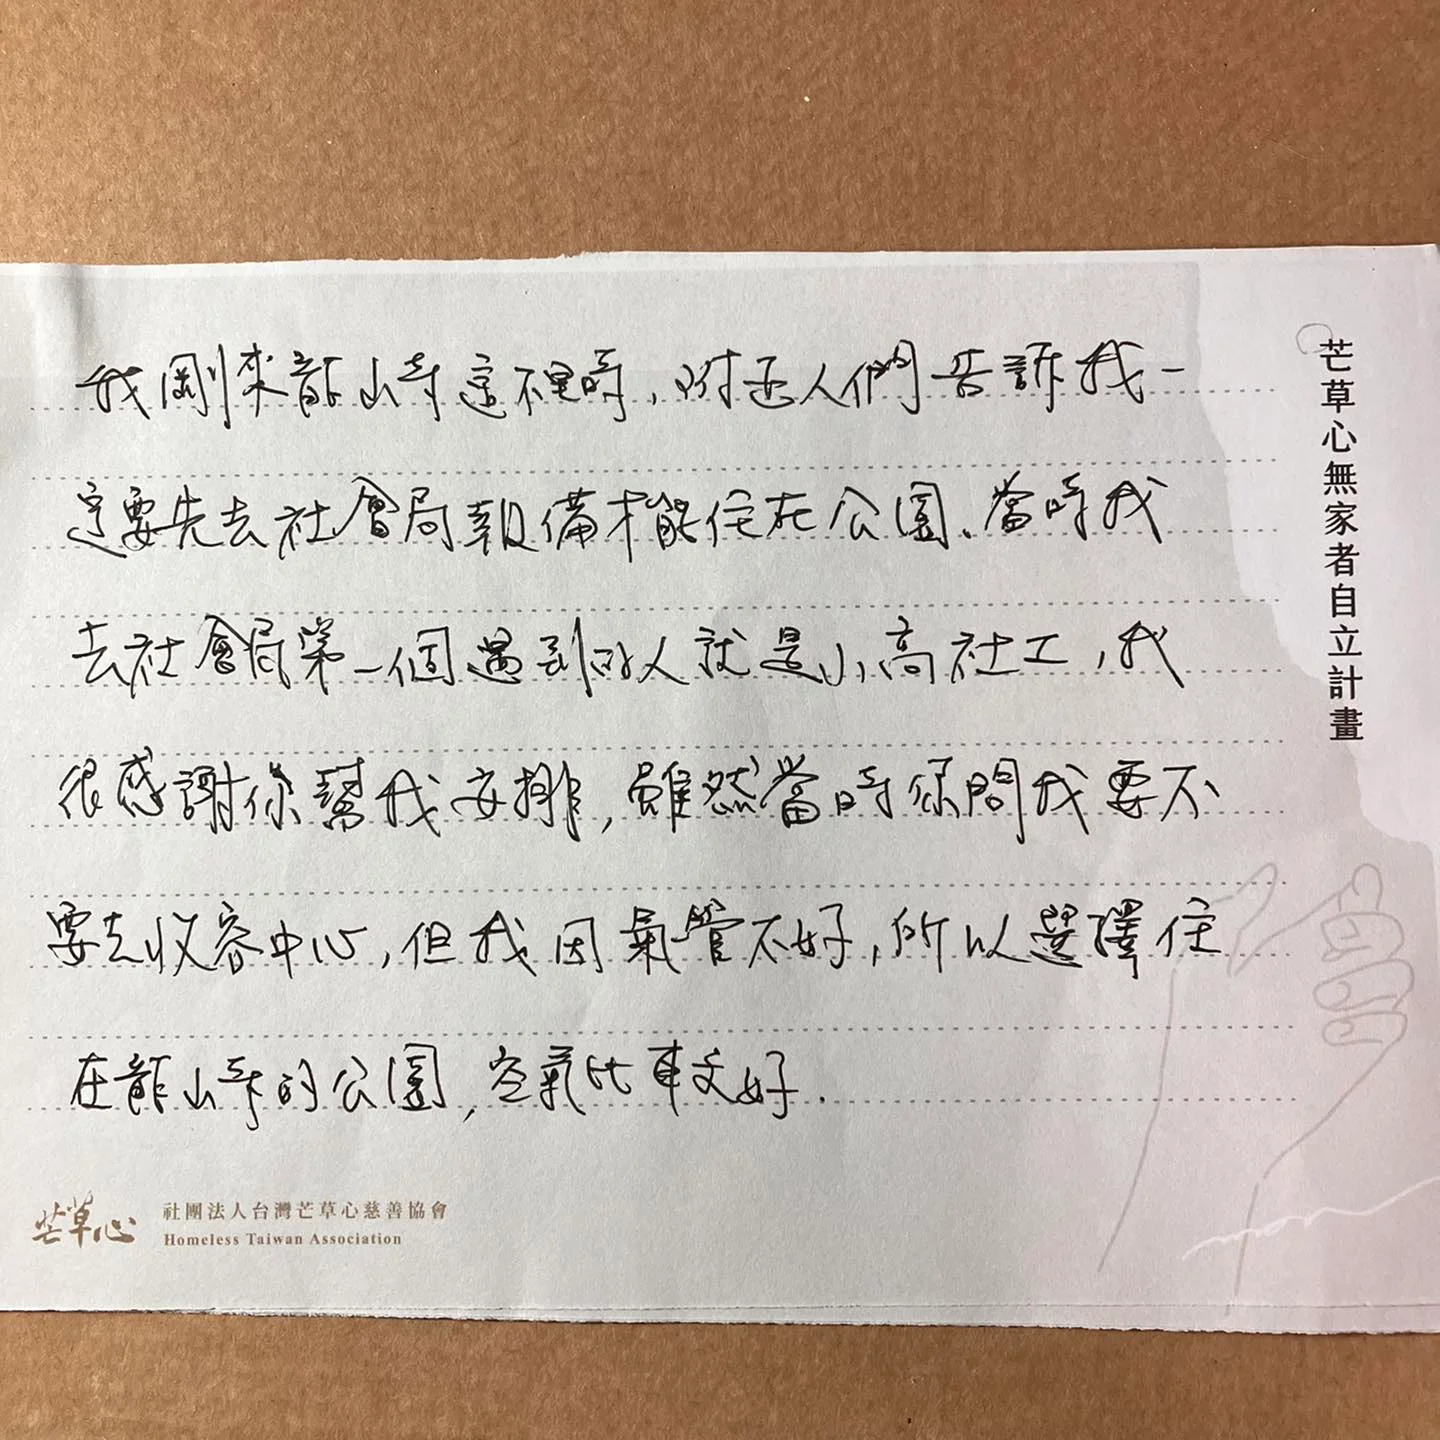 我剛來龍山寺這裡時,附近人們告訴我一
定要先去社會局報備才能住在公園、當時我
去社會局第一個遇到的人就是小高社工,我
很感謝你幫我安排,雖然當時你問我要不
要去收容中心,但我因氣管不好,所以選擇住
在龍山寺的公園,空氣比較好.
芒草心無家者自立計畫
芒草心
社團法人台灣芒草心慈善協會
Homeless Taiwan Association